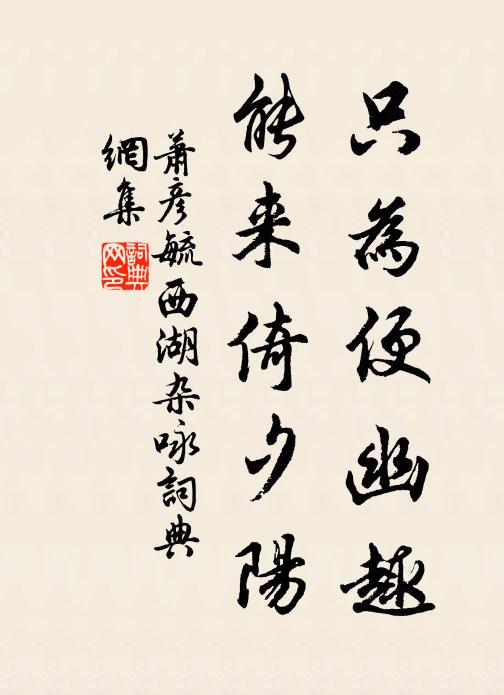 只為便幽趣
能来倚夕陽
蕭彦毓西湖杂咏詞典
網集
詞典
网印